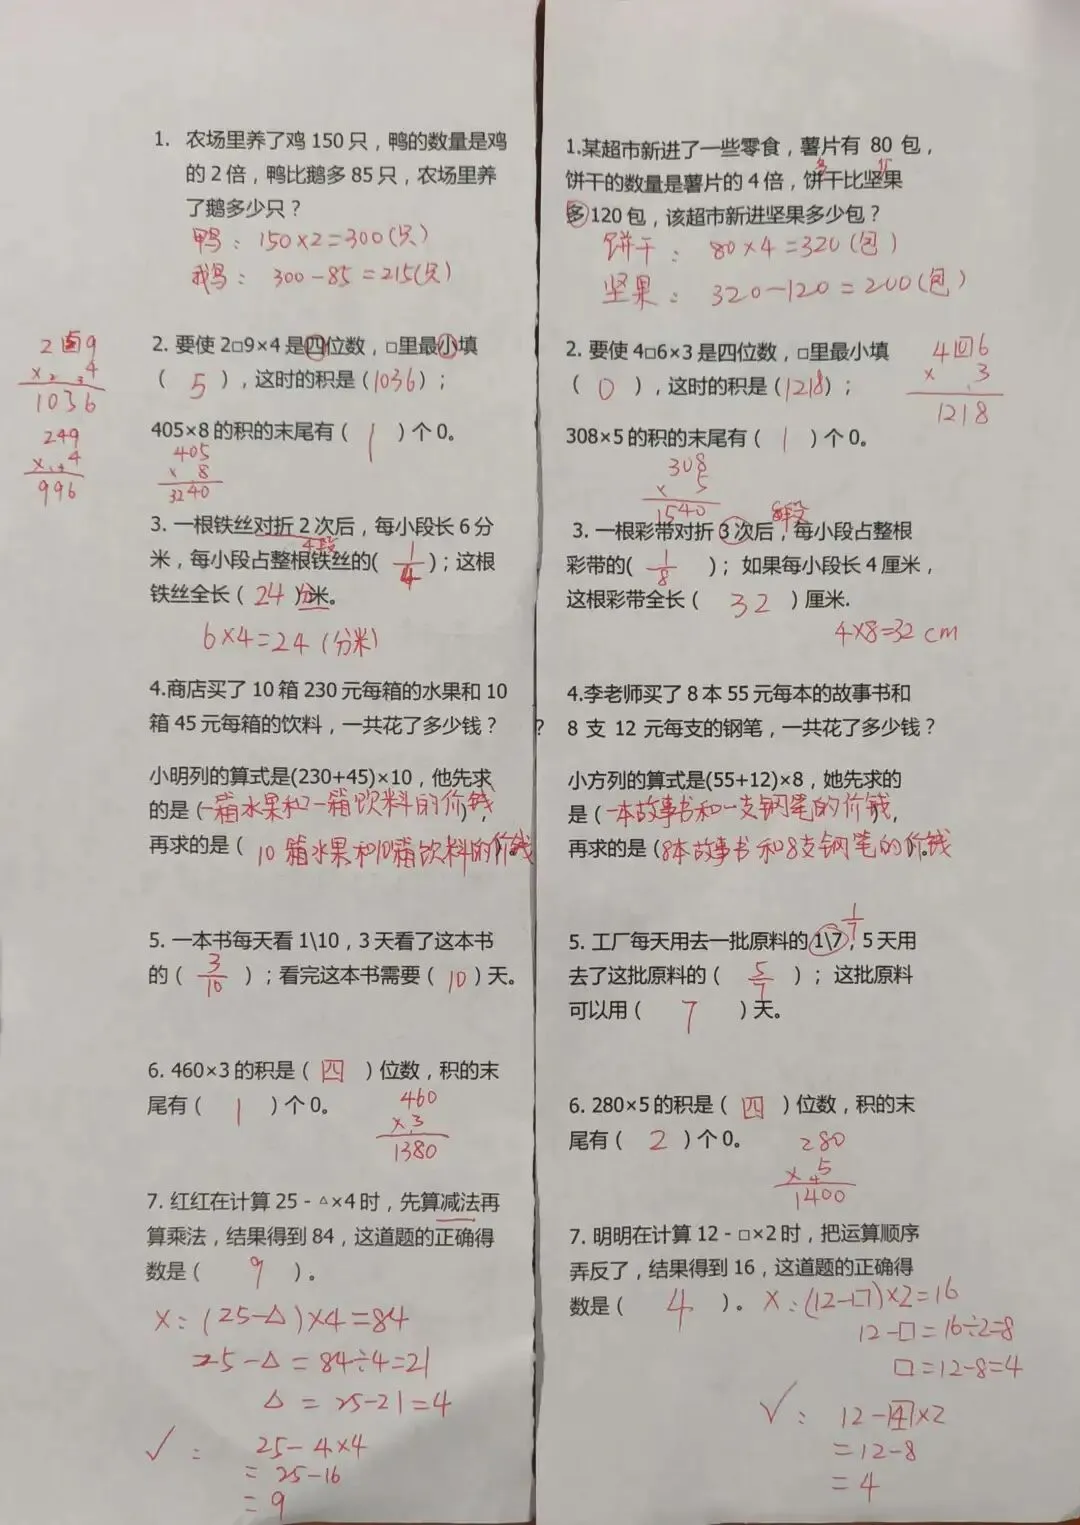 1. 农场里养了鸡150只，鸭的数量是鸡
的2倍，鸭比鹅多85只，农场里养
了鹅多少只？
鸭：150×2=300(只)
鹅：300-85=215(只)
2. 要使2□9×4是四位数，□里最小填
（ 5 ），这时的积是（1036）；
2 5 9
× 4
1036
249
× 4
996
405×8的积的末尾有（ 1 ）个0。
405
× 8
3240
3. 一根铁丝对折2次后，每小段长6分
4段
米，每小段占整根铁丝的( 1/4 )；这根
铁丝全长（ 24 ）分米。
6×4=24(分米)
4.商店买了10箱230元每箱的水果和10
箱45元每箱的饮料，一共花了多少钱？
小明列的算式是(230+45)×10，他先求
的是（一箱水果和一箱饮料的价钱），
再求的是（10箱水果和10箱饮料的价钱
5. 一本书每天看1\10，3天看了这本书
的（ 3/10 ）；看完这本书需要（ 10 ）天。
6. 460×3的积是（ 四 ）位数，积的末
尾有（ 1 ）个0。
460
× 3
1380
7. 红红在计算25-△×4时，先算减法再
算乘法，结果得到84，这道题的正确得
数是（ 9 ）。
×：(25-△)×4=84
25-△=84÷4=21
△=25-21=4
✓：25-4×4
=25-16
=9
1.某超市新进了一些零食，薯片有 80 包，
饼干的数量是薯片的4倍，饼干比坚果
多120包，该超市新进坚果多少包？
饼干：80×4=320(包)
坚果：320-120=200(包)
2. 要使4□6×3是四位数，□里最小填
（ 0 ），这时的积是（1218）；
4 0 6
× 3
1218
308×5的积的末尾有（ 1 ）个0。
308
× 5
1540
8段
3. 一根彩带对折3次后，每小段占整根
彩带的( 1/8 )； 如果每小段长4厘米，
这根彩带全长（ 32 ）厘米.
4×8=32 cm
4.李老师买了8本55元每本的故事书和
?
8 支 12 元每支的钢笔，一共花了多少钱？
小方列的算式是(55+12)×8，她先求的
是（一本故事书和一支钢笔的价钱），
再求的是（8本故事书和8支钢笔的价钱
1/7
5. 工厂每天用去一批原料的1\7，5天用
去了这批原料的（ 5/7 ）； 这批原料
可以用（ 7 ）天。
6. 280×5的积是（ 四 ）位数，积的末
尾有（ 2 ）个0。
280
× 5
1400
7. 明明在计算12-□×2时，把运算顺序
弄反了，结果得到16，这道题的正确得
数是（ 4 ）。
×：(12-□)×2=16
12-□=16÷2=8
□=12-8=4
✓：12-4×2
=12-8
=4